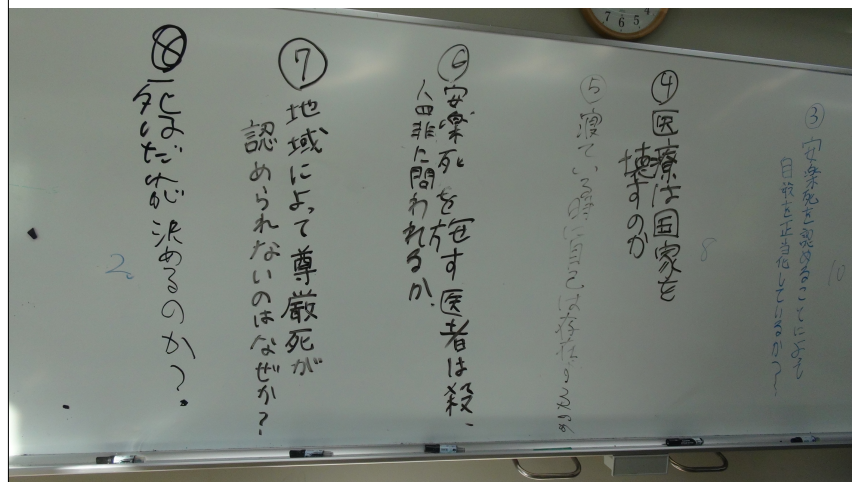 ③ 安楽死を認めることによって
自殺を正当化しているか？
10
④ 医療は国家を
壊すのか
8
⑤ 寝ている時に自己は存在するのか
⑥ 安楽死を施す医者は殺
人罪に問われるか、
⑦ 地域によって尊厳死が
認められないのはなぜか？
⑧ 死はだれが決めるのか？
2
7 6 5 4